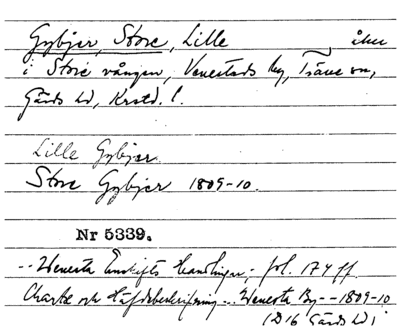 Gybjer, Store, Lille åker
i Store vången, Venestads by, Träne sn,
Gärds hd, Krstd. l.
Lille Gybjer
Store Gybjer 1809-10.
Nr 5339.
-- Wenesta Enskifts Handlingar, fol. 174 ff
Charta och Häfdebeskrifning -- Wenesta By -- 1809-10
(D16 Gärds hd)